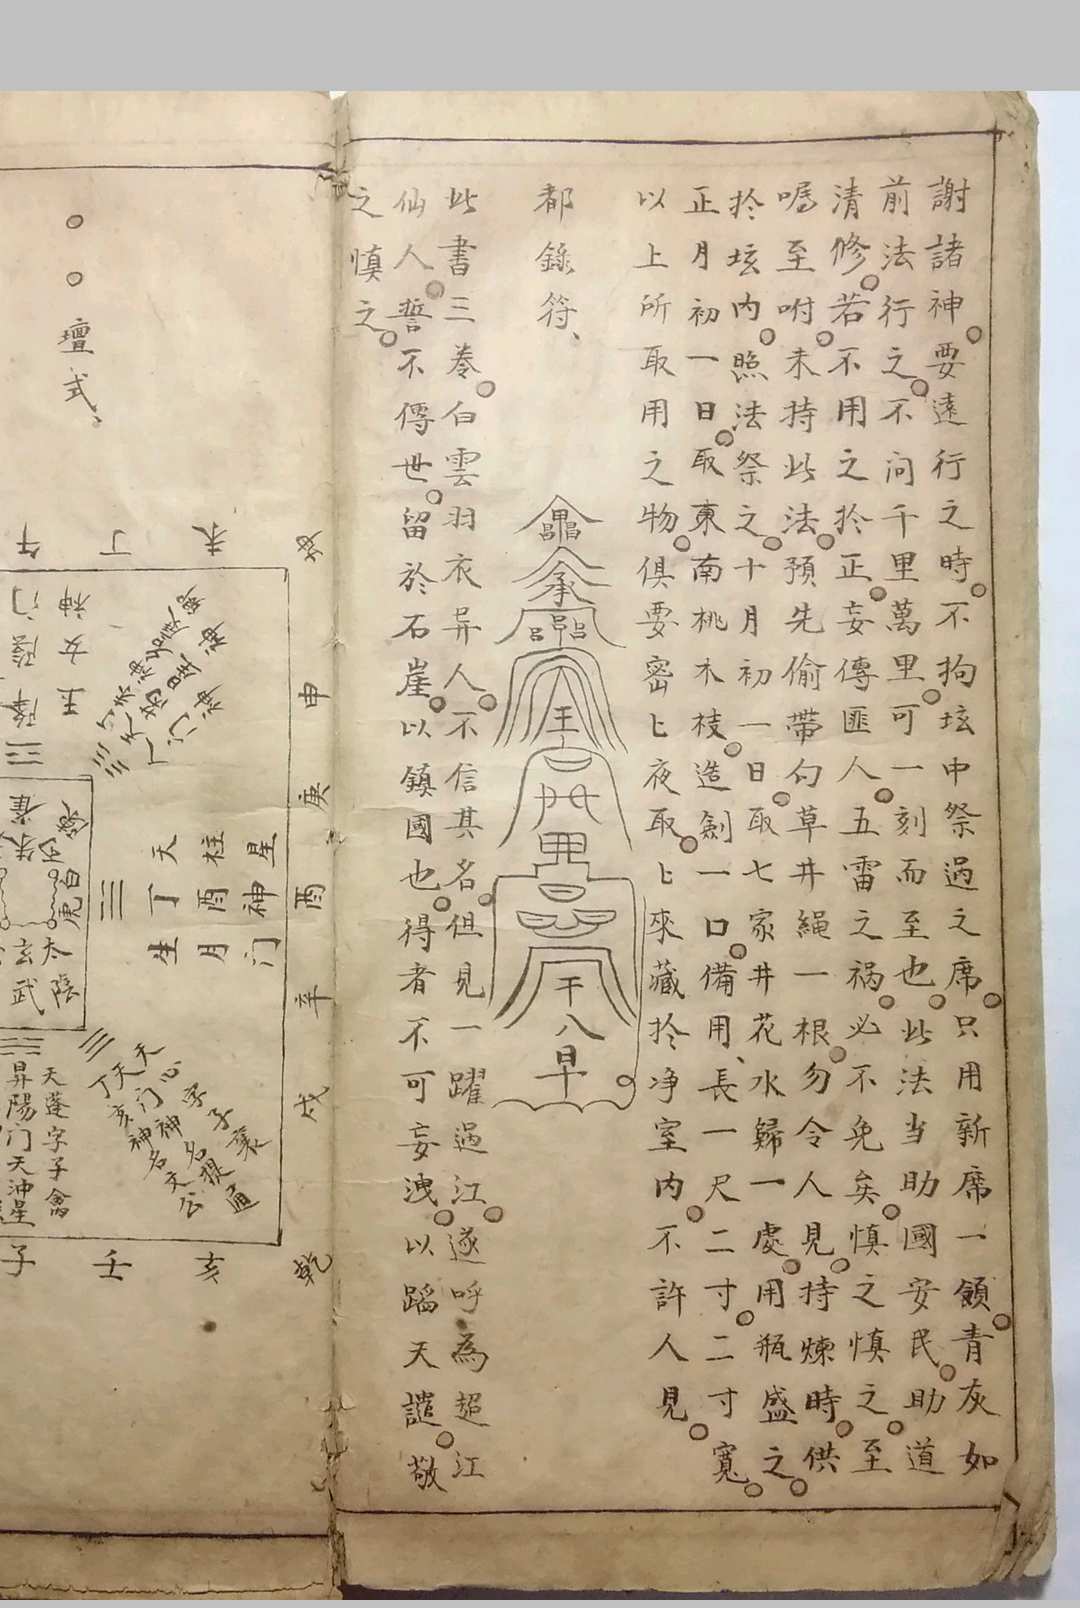 謝諸神要遠行之時不拘坛中祭過之席只用新席一領青灰如
前法行之不问千里萬里可一刻而至也此法当助國安民助道
清修若不用之扵正妄傳匪人五雷之祸必不免矣慎之慎之至
嘱至咐未持此法預先偷帶勾草井繩一根勿令人見持煉時供
扵坛内照法祭之十月初一日取七家井花水歸一處用瓶盛之
正月初一日取東南桃木枝造劍一口備用、長一尺二寸二寸寬
以上所取用之物俱要密匕夜取匕來藏扵净室内不許人見
都錄符、
此書三卷白雲羽衣异人不信其名但見一躍過江遂呼為超江
仙人誓不傳世留於石崖以鎮國也得者不可妄洩以蹈天譴敬
之慎之
壇式、
坤
未
丁
午
申
庚
酉
辛
戌
乾
亥
壬
子
星神门
柱酉月
天丁生
白虎
太陰
玄武
天蓬字子禽
昇陽门天沖星